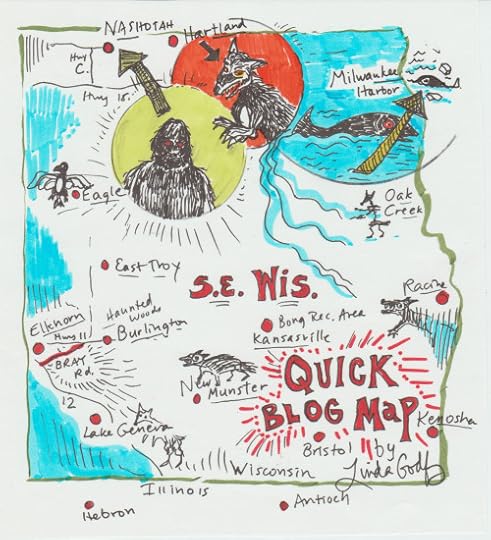 NASHOTAH
Hartland
Hwy
C.
Hwy 18.
Milwaukee
Harbor
Eagle
Oak
Creek
East Troy
S.E. Wis.
Racine
Elkhorn
Hwy 11
BRAY
Rd.
Haunted
Woods
Burlington
Bong Rec. Area
Kansasville
New
Munster
QUICK
BLOG MAP
12
Lake Geneva
Kenosha
Bristol
by
Linda Godf
Wisconsin
Illinois
Hebron
Antioch